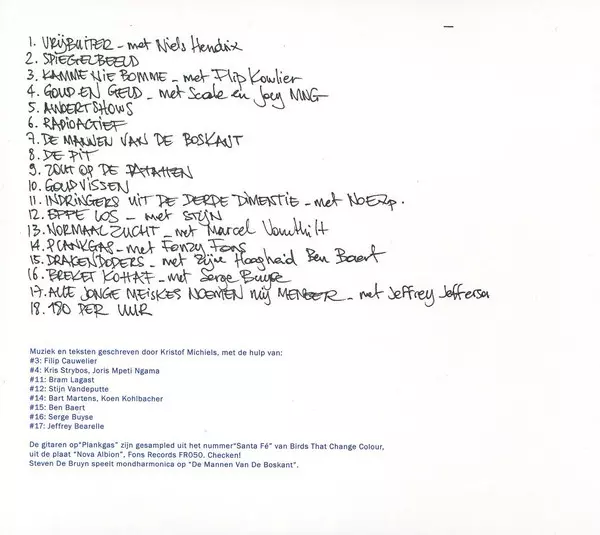 1. VRIJBUITER - met Niels Hendrix
2. SPIEGELBEELD
3. KAMME NIE BOMME - met Flip Kowlier
4. GOUD EN GELD - met Scale en Joey MNG
5. ANDERT SHOWS
6. RADIOACTIEF
7. DE MANNEN VAN DE BOSKANT
8. DE PIT
9. ZOUT OP DE PATATTEN
10. GOUDVISSEN
11. INDRINGERS UIT DE DERDE DIMENTIE - met NoEzp.
12. EPPE LOS - met STIJN
13. NORMAAL ZUCHT - met Marcel Vanthilt
14. PLANKGAS - met Fonzy Fons
15. DRAKENDODERS - met Zijne Hoogheid Ben Baert
16. BREKET KOTTAF - met Serge Buyse
17. ALLE JONGE MEISKES NOEMEN MIJ MENEER - met Jeffrey Jefferson
18. 180 PER UUR
Muziek en teksten geschreven door Kristof Michiels, met de hulp van:
#3: Filip Cauwelier
#4: Kris Strybos, Joris Mpeti Ngama
#11: Bram Lagast
#12: Stijn Vandeputte
#14: Bart Martens, Koen Kohlbacher
#15: Ben Baert
#16: Serge Buyse
#17: Jeffrey Bearelle
De gitaren op "Plankgas" zijn gesampled uit het nummer "Santa Fé" van Birds That Change Colour,
uit de plaat "Nova Albion". Fons Records FR050. Checken!
Steven De Bruyn speelt mondharmonica op "De Mannen Van De Boskant".